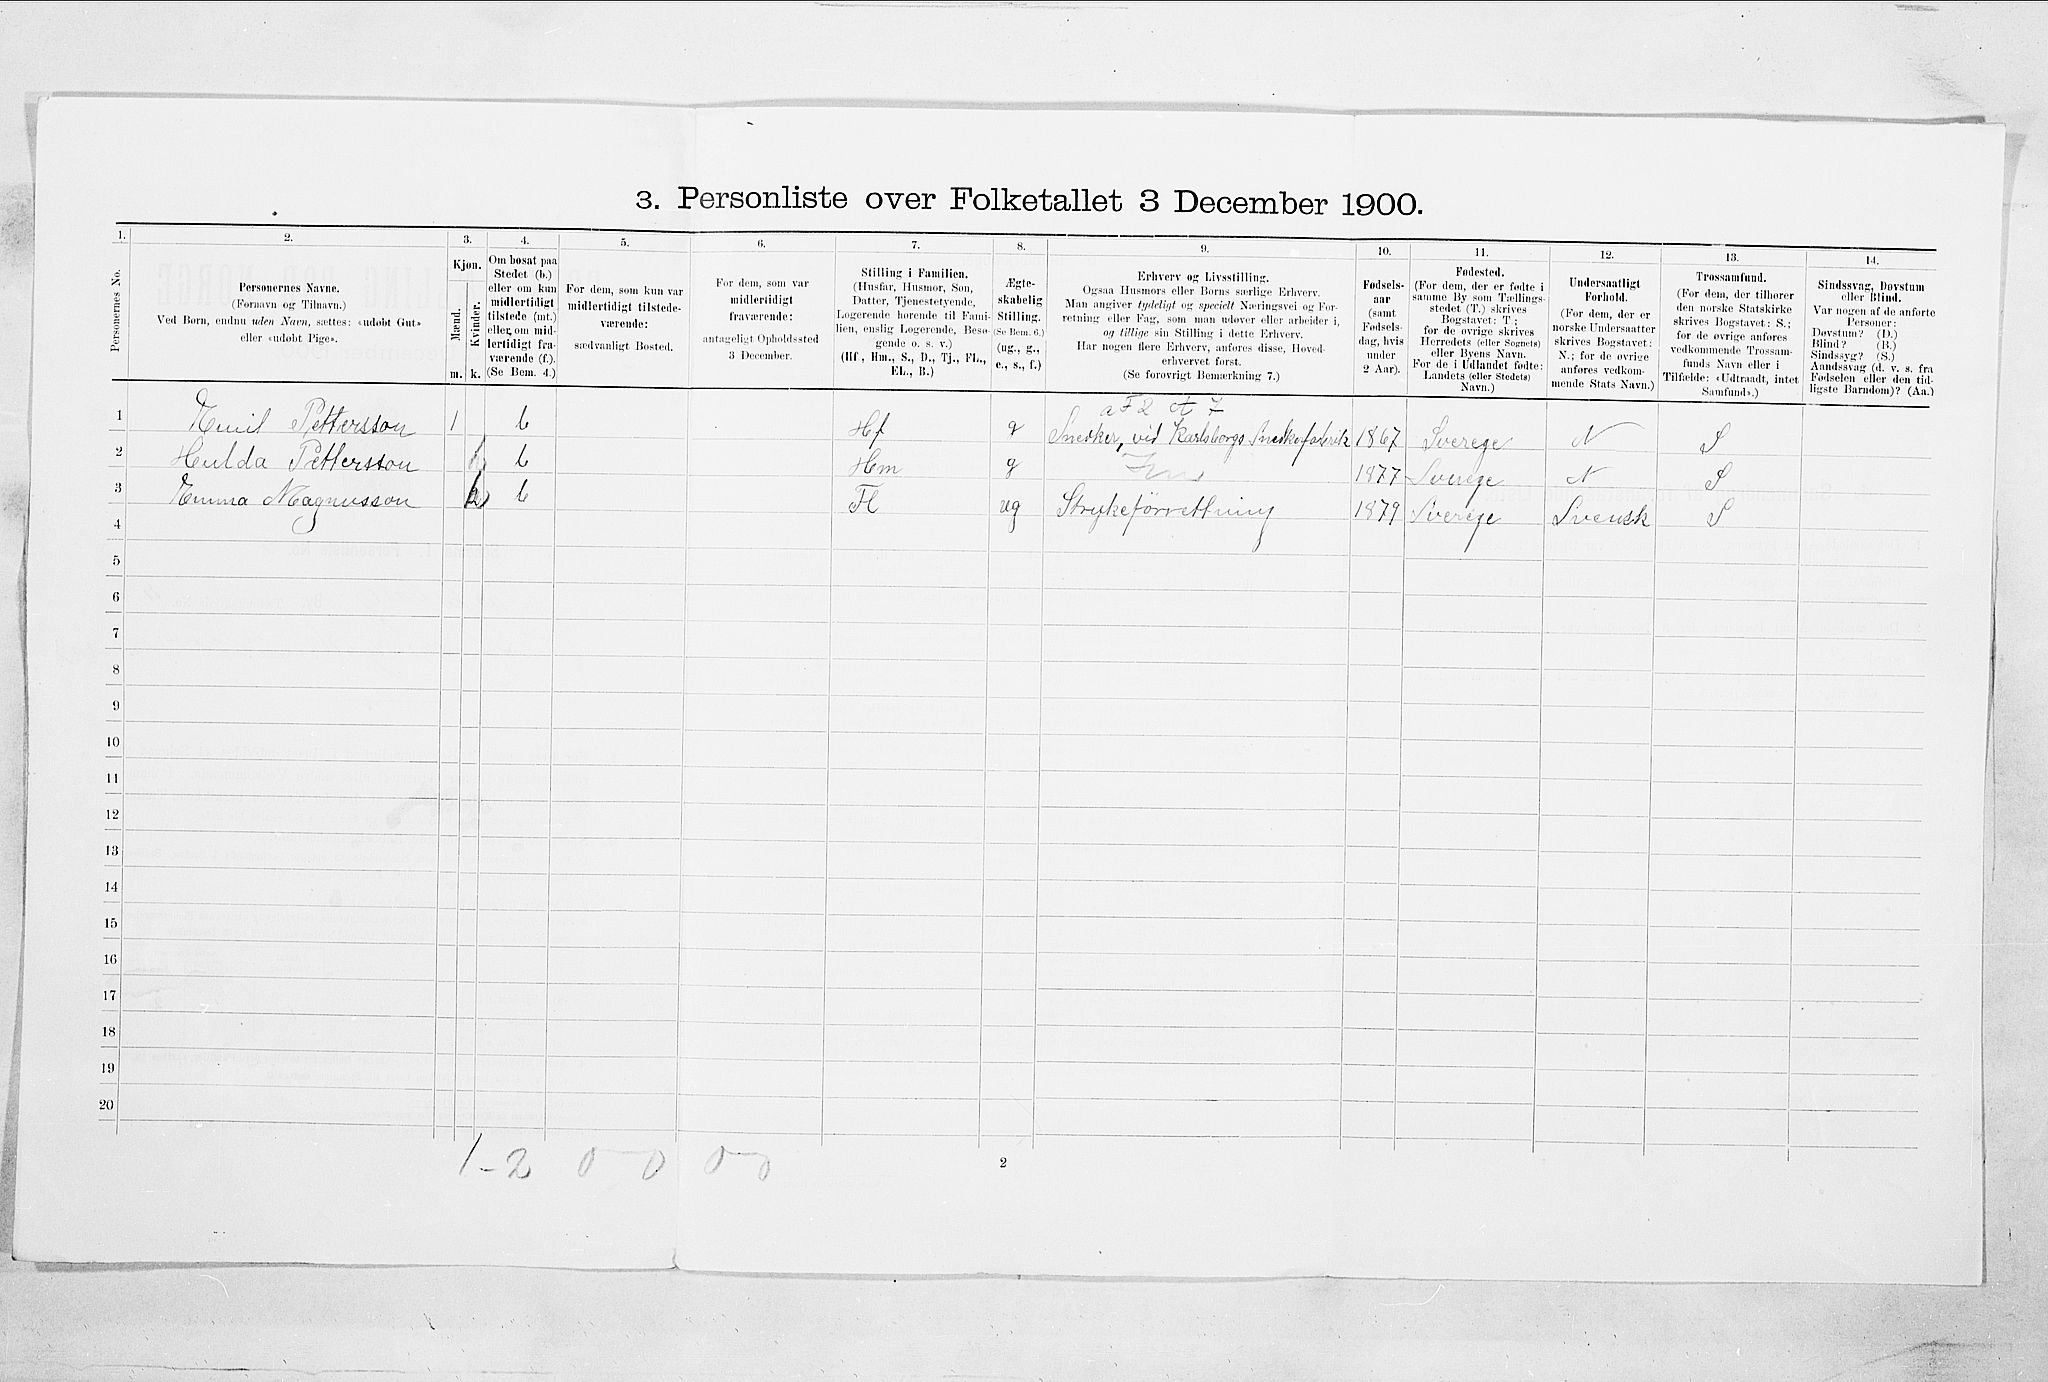 3. Personliste over Folketallet 3 December 1900.
1. 2. 3. 4. 5. 6. 7. 8. 9. 10. 11. 12. 13. 14.
Personernes No.
Personernes Navne.
(Fornavn og Tilnavn.)
Ved Børn, endnu uden Navn, sættes: «udøbt Gut»
eller «udøbt Pige».
Kjøn.
Mænd.
Kvinder.
m. k.
Om bosat paa
Stedet (b.)
eller om kun
midlertidigt
tilstede (mt.)
eller om mid-
lertidigt fra-
værende (f.).
(Se Bem. 4.)
For dem, som kun var
midlertidigt tilstede-
værende:
sædvanligt Bosted.
For dem, som var
midlertidigt
fraværende:
antageligt Opholdssted
3 December.
Stilling i Familien.
(Husfar, Husmor, Søn,
Datter, Tjenestetyende,
Logerende hørende til Fami-
lien, enslig Logerende, Besø-
gende o. s. v.)
(Hf., Hm., S., D., Tj., FL.,
EL., B.)
Ægte-
skabelig
Stilling.
(Se Bem. 6.)
(ug., g.,
e., s., f.)
Erhverv og Livsstilling.
Ogsaa Husmors eller Børns særlige Erhverv.
Man angiver tydeligt og specielt Næringsvei og For-
retning eller Fag, som man udøver eller arbeider i,
og tillige sin Stilling i dette Erhverv.
Har nogen flere Erhverv, anføres disse, Hoved-
erhvervet først.
(Se forøvrigt Bemærkning 7.)
Fødsels-
aar
(samt
Fødsels-
dag, hvis
under
2 Aar).
Fødested.
(For dem, der er fødte i
samme By som Tællings-
stedet (T.) skrives
Bogstavet: T;
for de øvrige skrives
Herredets (eller Sognets)
eller Byens Navn.
For de i Udlandet fødte:
Landets (eller Stedets)
Navn.)
Undersaatligt
Forhold.
(For dem, der er
norske Undersaatter
skrives Bogstavet:
N.; for de øvrige
anføres vedkom-
mende Stats Navn.)
Trossamfund.
(For dem, der tilhører
den norske Statskirke
skrives Bogstavet: S.;
for de øvrige anføres
vedkommende Trossam-
funds Navn eller i
Tilfælde: «Udtraadt, intet
Samfund».)
Sindssvag, Døvstum
eller Blind.
Var nogen af de anførte
Personer:
Døvstum? (D.)
Blind? (B.)
Sindssyg? (S.)
Aandssvag (d. v. s. fra
Fødselen eller den tid-
ligste Barndom)? (Aa.)
1 Emil Pettersson 1 b Hf g Snedker, vid Karlsborgs Snedkefabrik 1867 Sverege N S
2 Hulda Pettersson b Hm g 1877 Sverege N S
3 Emma Magnusson b Fl ug Strykeförrettning 1879 Sverege Svensk S
4
5
6
7
8
9
10
11
12
13
14
15
16
17
18
19
20
1-2 0-0 0-0
2